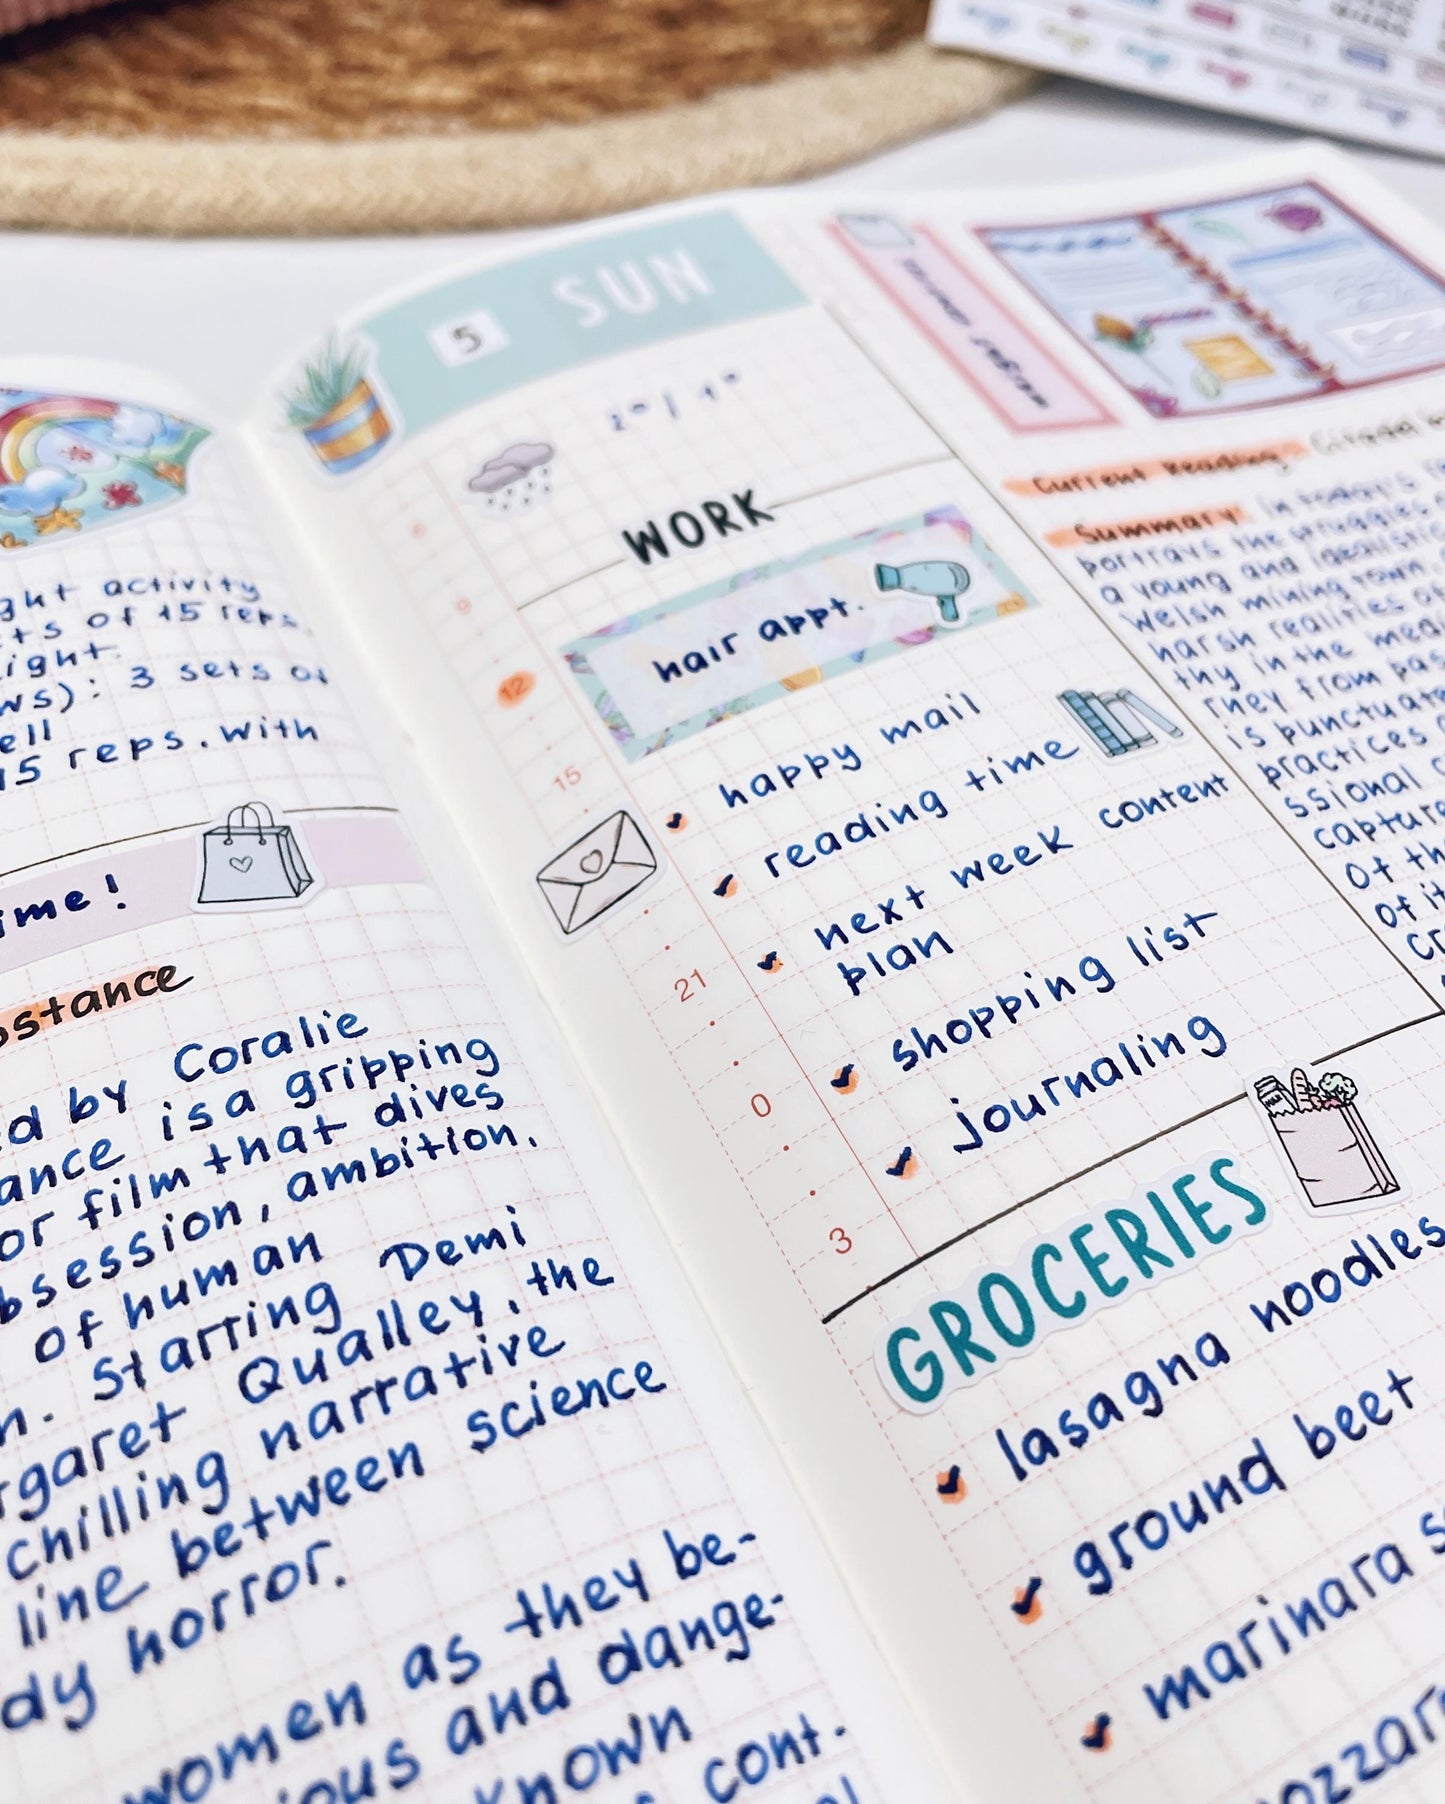 ght activity
ts of 15 reps.
ight.
ws): 3 sets of
ell
15 reps. with
ime!
ostance
ed by Coralie
ance is a gripping
or film that dives
bsession, ambition,
of human
n. Starring Demi
rgaret Qualley, the
chilling narrative
line between science
dy horror.
women as they be-
ious and dange-
known
cont.
5 SUN
WORK
hair appt.
12
15
21
0
3
happy mail
reading time
next week content
plan
shopping list
journaling
GROCERIES
lasagna noodles
ground beet
marinara s
ozzar
Current Reading: Citadel
Summary: In today's
portrays the struggles
a young and idealistic
Welsh mining town.
harsh realities of
thy in the med
rney from pas
is punctuate
practices
ssional c
capture
of th
of it
cr